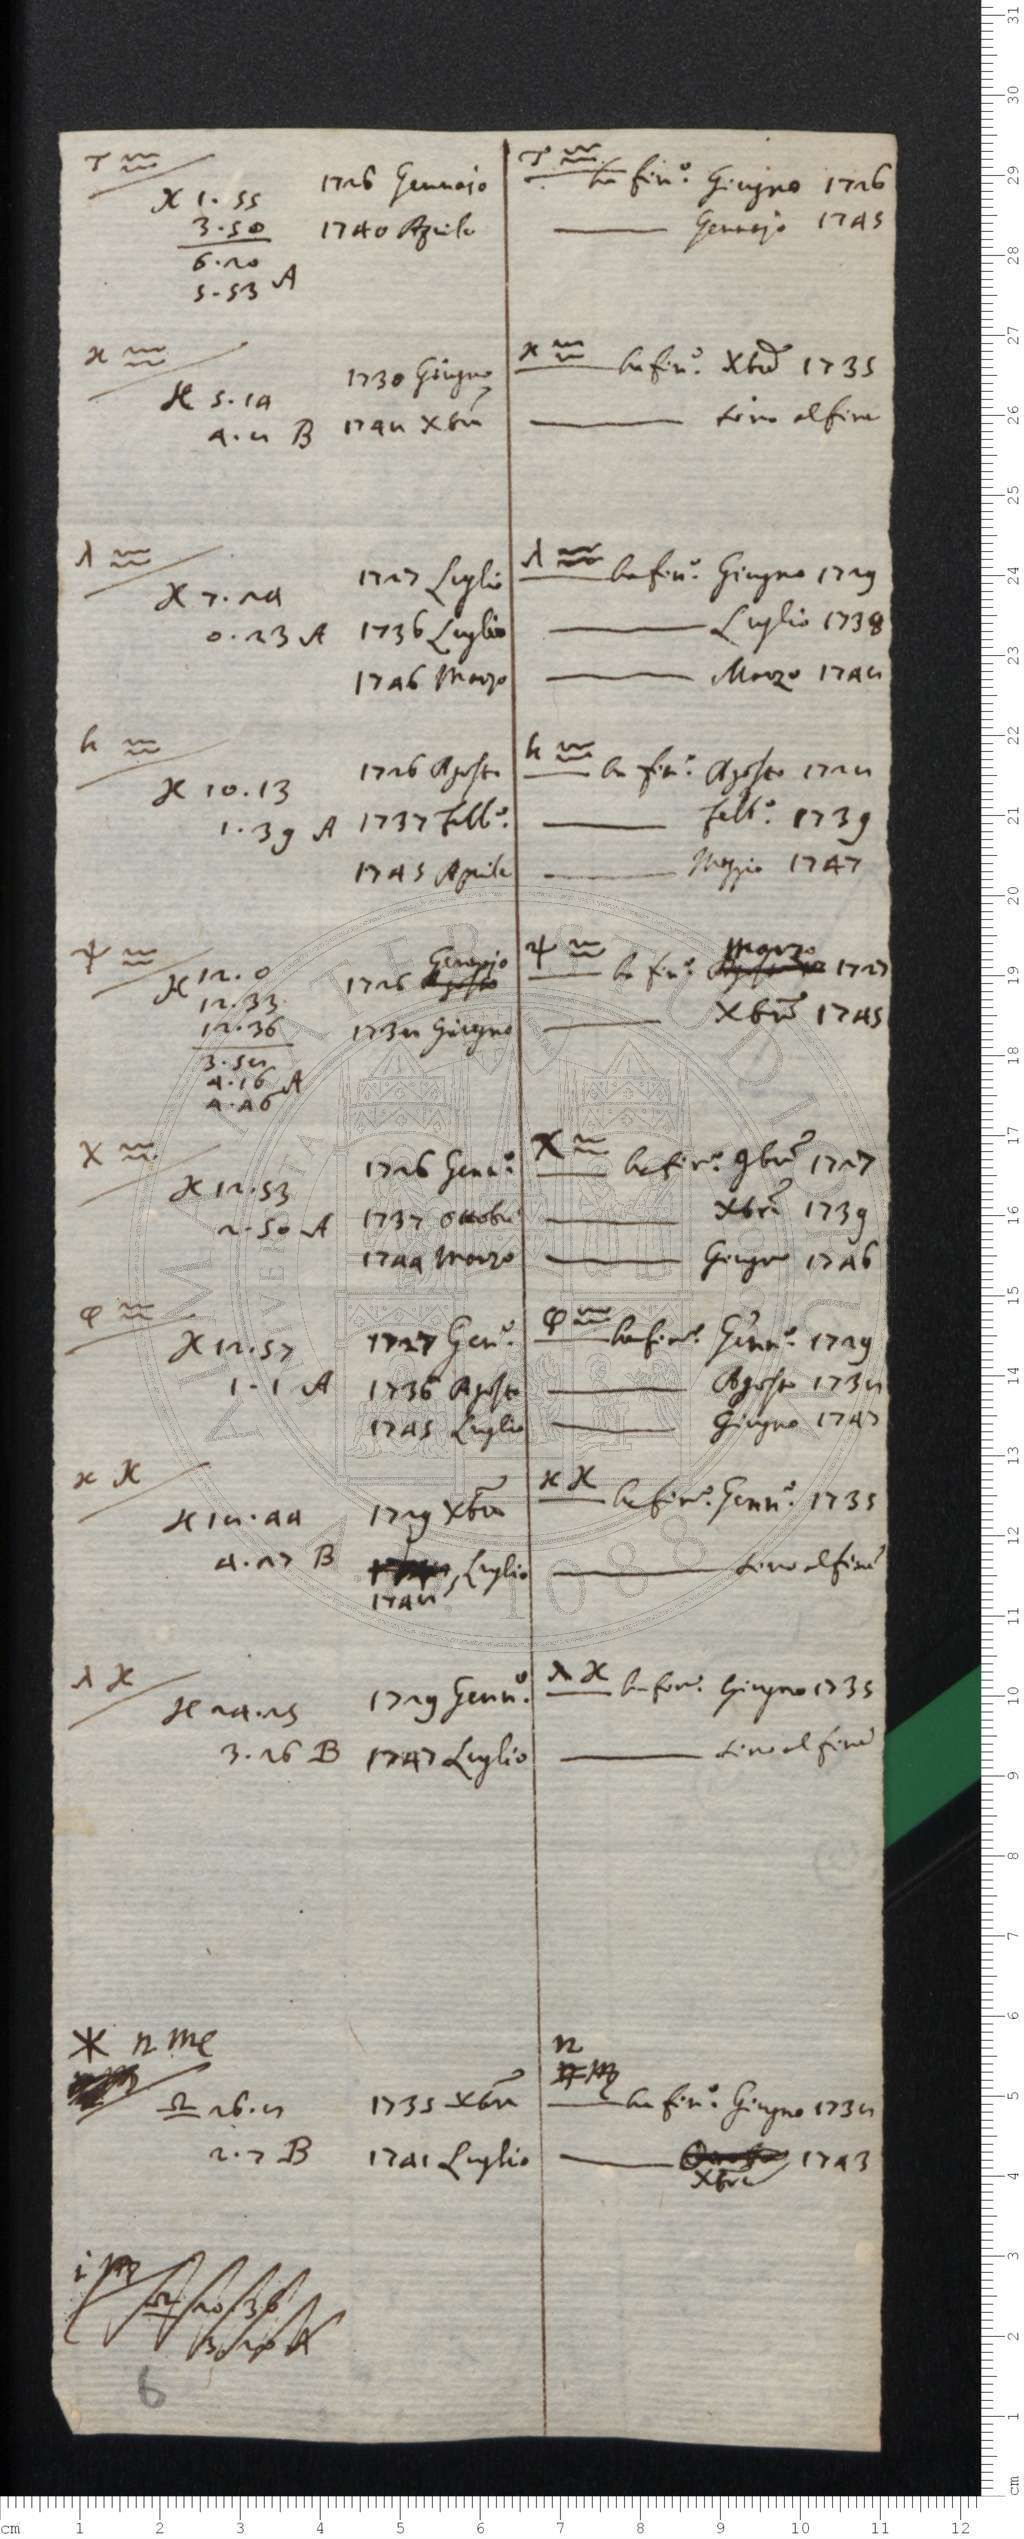 τ ♒
♓ 1.55 1726 Gennajo
3.50 1740 Aprile
6.20
5.53 A
τ ♒ ha fin.º Giugno 1726
Gennajo 1745
ϰ ♒
♓ 5.14 1730 Giugno
4.8 B 1748 Xbre
ϰ ♒ ha fin.º Xbre 1735
sino al fine
λ ♒
♓ 7.24 1727 Luglio
0.23 A 1736 Luglio
1746 Marzo
λ ♒ ha fin.º Giugno 1729
Luglio 1738
Marzo 1748
h ♒
♓ 10.13 1726 Agosto
1.39 A 1737 Febb.º
1745 Aprile
h ♒ ha fin.º Agosto 1728
Febb.º 1739
Maggio 1747
ψ ♒ Gennajo
♓ 12.0 1726 Agosto
12.33
12.36 1738 Giugno
3.58
4.16 A
4.46
ψ ♒ Marzo
ha fin.º 1727
Xbre 1745
χ ♒
♓ 12.53 1726 Genn.º
2.50 A 1737 Ottobre
1744 Marzo
χ ♒ ha fin.º 9bre 1727
Xbre 1739
Giugno 1746
φ ♒
♓ 12.57 1727 Gen.º
1.1 A 1736 Agosto
1745 Luglio
φ ♒ ha fin.º Genn.º 1729
Agosto 1738
Giugno 1747
ϰ ♓
♓ 18.44 1729 Xbre
4.27 B Luglio
1748
ϰ ♓ ha fin.º Genn.º 1735
sino al fine
λ ♓
♓ 24.25 1729 Genn.º
3.26 B 1747 Luglio
λ ♓ ha fin.º Giugno 1735
sino al fine
* n ♍
♎ 26.8 1735 Xbre
2.7 B 1741 Luglio
n
♍ ha fin.º Giugno 1738
1743
Xbre
i ♍
♎ 20.36
3.20 A
6
ALMA MATER STUDIORUM
UNIVERSITÀ
A.D. 1088